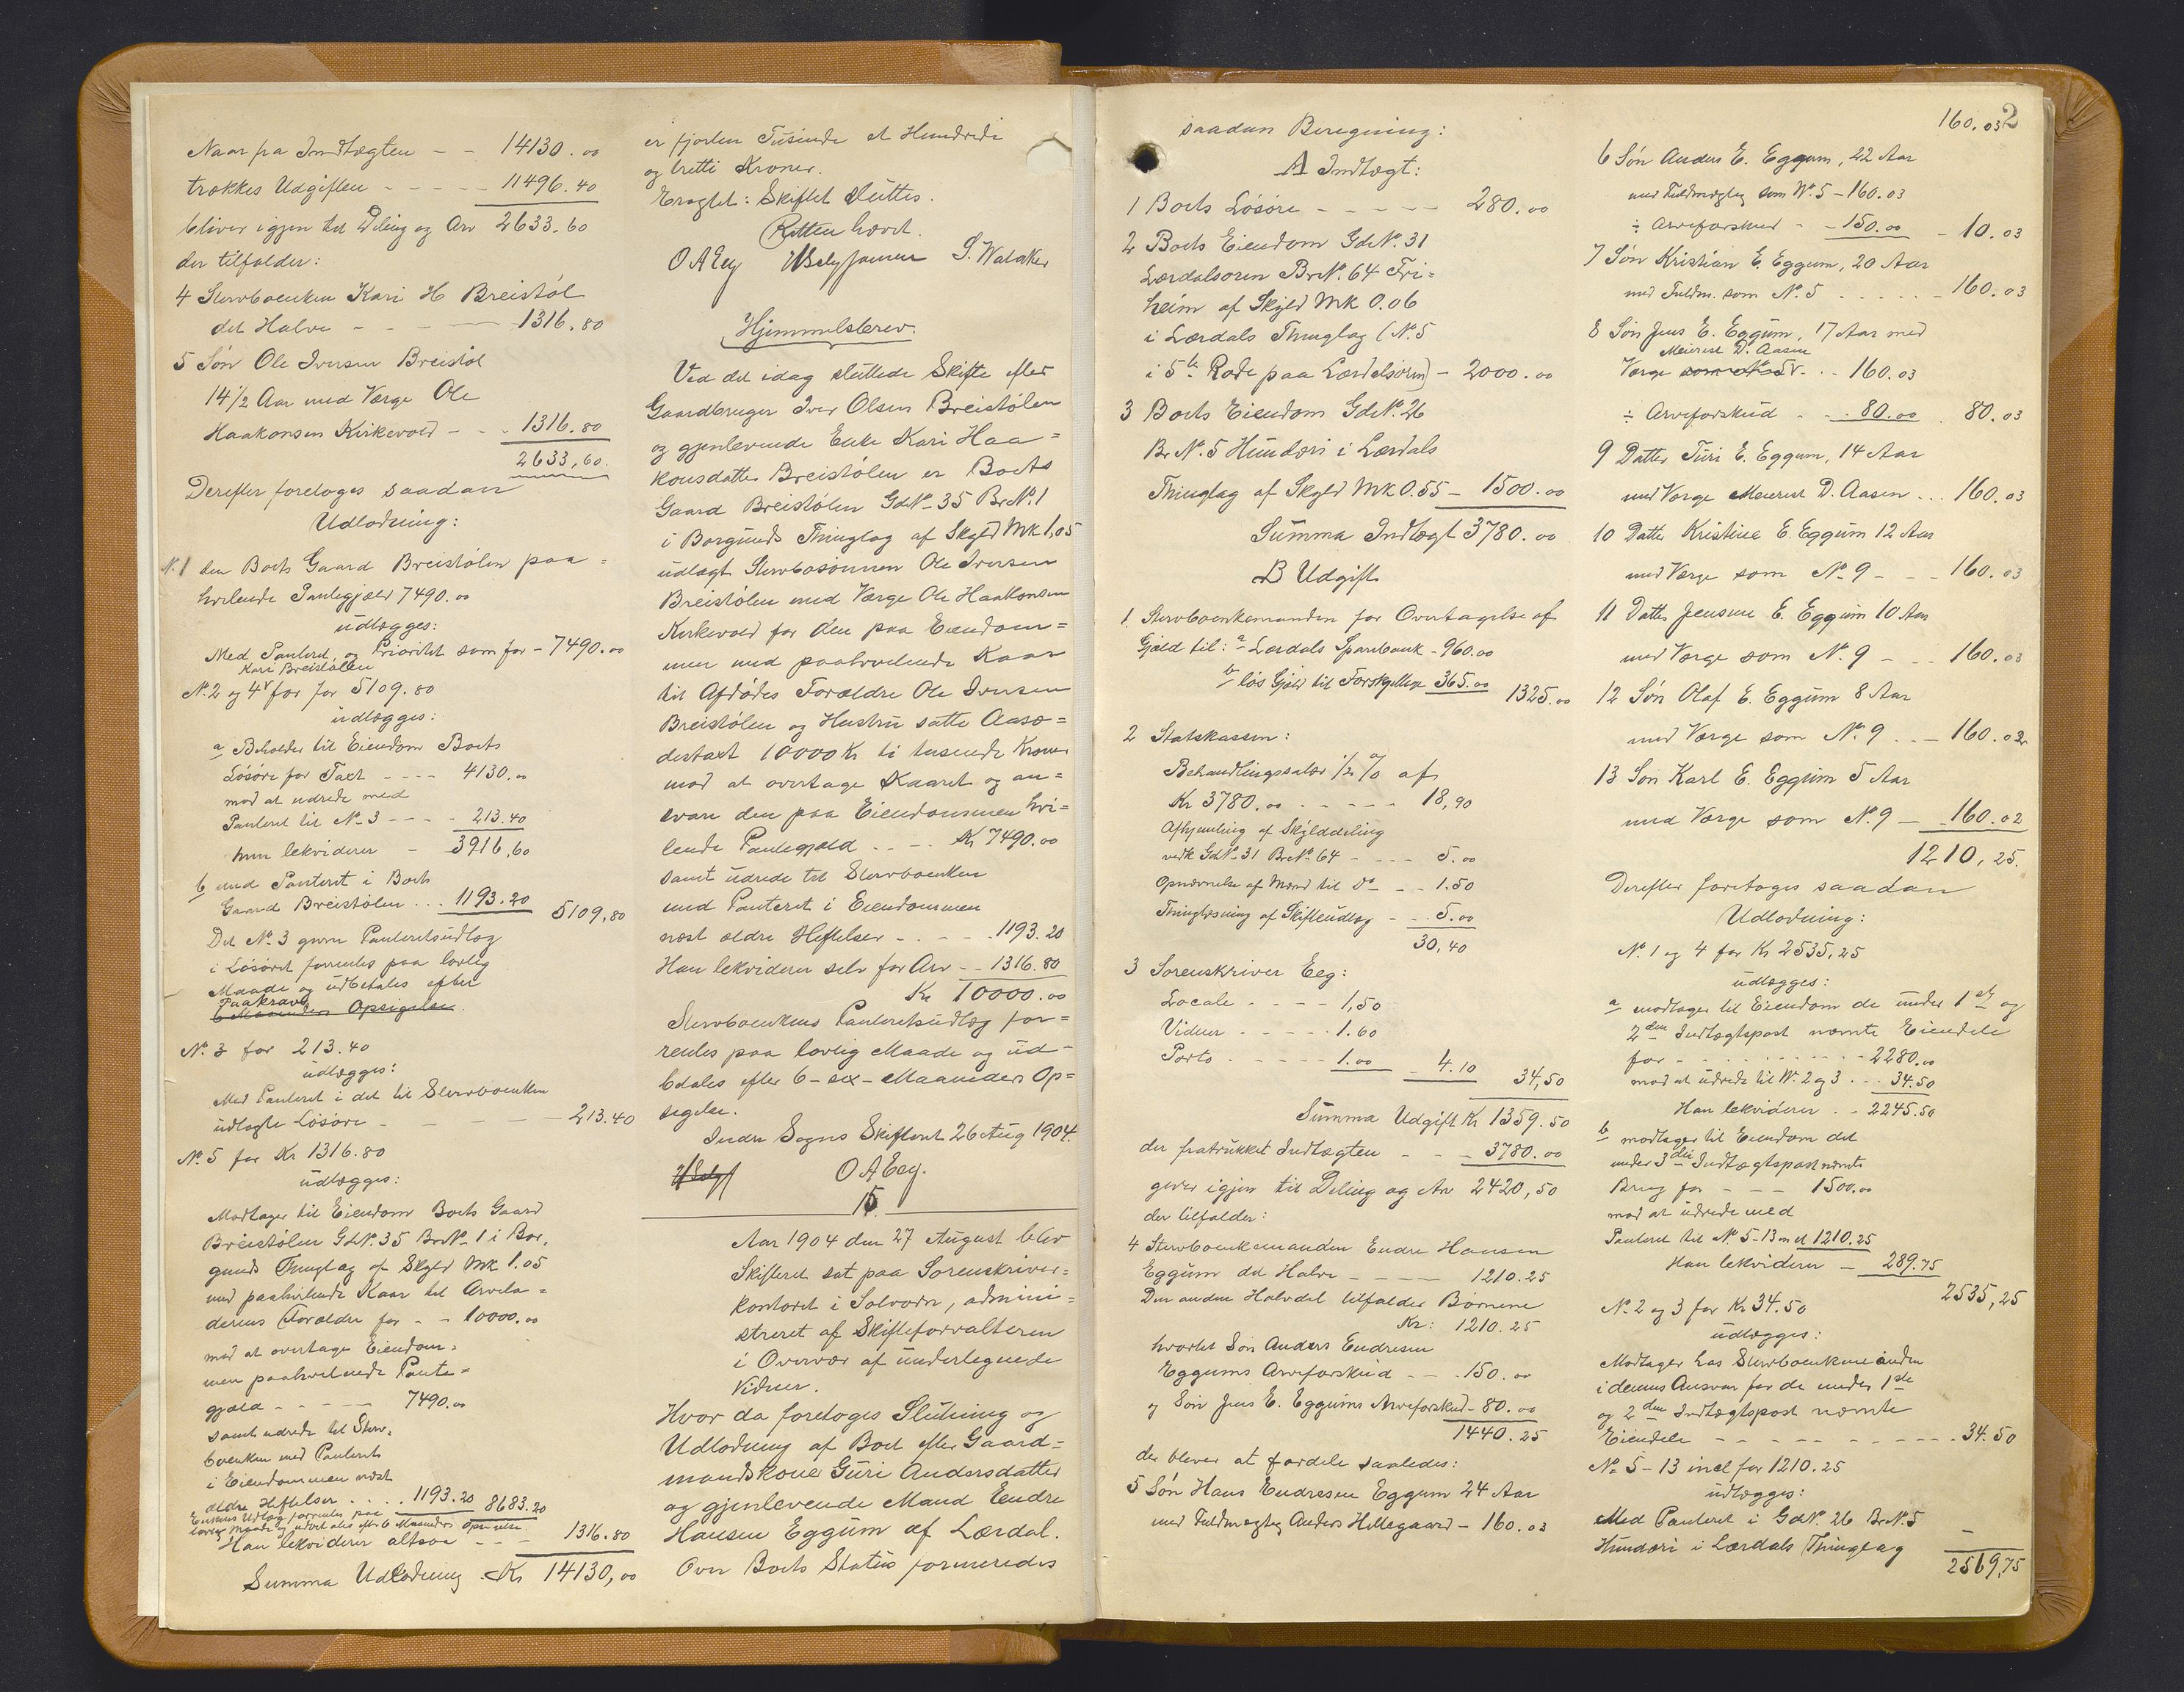 Naar fra Indtægten - - 14130.00
trækkes Udgiften - - - - - 11496.40
bliver igjen til Deling og Arv 2633.60
der tilfalder:
4 Stervboenken Kari H Breistøl
det Halve - - - 1316.80
5 Søn Ole Iversen Breistøl
14 1/2 Aar med Værge Ole
Haakonsen Kirkevold - - . 1316.80
2633,60.
Derefter foretoges saadan
Udlodning:
N. 1 den Boets Gaard Breistølen paa=
hvilende Pantegjæld 7490.00
udlægges:
Med Panteret og Prioritet som før - 7490.00
Kari Breistølen
No. 2 og 4 for 5109.80
udlægges:
a Beholder til Eiendom Boets
Løsøre for Taxt - - - - 4130.00
mod at udrede med
Panteret til No. 3 - - - - 213.40
hun lekviderer - 3916,60
b med Panteret i Boets
Gaard Breistølen . . . 1193.20 5109,80
Det No. 3 givne Panteretsudlæg
i Løsøret forrentes paa lovlig
Maade og udbetales efter
Paakrav
6 Maaneders Opsigelse.
No. 3 for 213.40
udlægges:
Med Panteret i det til Stervboenken
udlagte Løsøre - - - - - 213.40
No. 5 for Kr 1316.80
udlægges:
Modtager til Eiendom Boets Gaard
Breistølen GdNo. 35 BrNo. 1 i Bor=
gunds Thinglag af Skyld Mk 1.05
med paahvilende Kaar til Arvela=
derens Forældre for - - 10000.00
mod at overtage Eiendom=
men paahvilende Pante=
gjæld - - - - - 7490.00
samt udrede til Sterv=
boenken med Panteret
i Eiendommen næst
ældre Heftelser . . . . 1193.20 8683.20
Enkens Udlæg forrentes paa
lovlig Maade og udbetales efter 6 Maaneders Opsigelse
Han lekviderer altsaa - - - 1316.80
Summa Udlodning Kr 14130,00
er fjorten Tusinde et Hundrede
og tretti Kroner.
Eragtet: Skiftet sluttes.
Retten hævet.
O A Eeg S. Walaker
Hjemmelsbrev.
Ved det idag sluttede Skifte efter
Gaardbruger Iver Olsen Breistølen
og gjenlevende Enke Kari Haa=
konsdatter Breistølen er Boets
Gaard Breistølen GdNo. 35 BrNo. 1
i Borgunds Thinglag af Skyld Mk 1,05
udlagt Stervbosønnen Ole Iversen
Breistølen med Værge Ole Haakonsen
Kirkevold for den paa Eiendom=
men med paahvilende Kaar
til Afdødes Forældre Ole Iversen
Breistølen og Hustru satte Aasæ=
destaxt 10000 Kr ti tusende Kroner
mod at overtage Kaaret og an=
svare den paa Eiendommen hvi=
lende Pantegjæld . . - . Kr 7490.00
samt udrede til Stervboenken
med Panteret i Eiendommen
næst ældre Heftelser - . - . . 1193.20
Han lekviderer selv for Arv - - 1316.80
Kr 10000.00
Stervboenkens Panteretsudlæg for=
rentes paa lovlig Maade og ud=
betales efter 6 - sex - Maaneders Op=
sigelse.
Indre Sogns Skifteret 26 Aug 1904.
O A Eeg.
15.
Aar 1904 den 27 August blev
Skifteret sat paa Sorenskriver=
kontoret i Solvorn, admini=
streret af Skifteforvalteren
i Overvær af underlegnede
Vidner.
Hvor da foretoges Slutning og
Udlodning af Boet efter Gaard=
mandskone Guri Andersdatter
og gjenlevende Mand Endre
Hansen Eggum af Lærdal.
Over Boets Status formeredes
saadan Beregning:
A Indtægt:
1 Boets Løsøre - - - - - 280.00
2 Boets Eiendom GdNo. 31
Lærdalsøren BrNo. 64 Fri=
heim af Skyld Mk 0.06
i Lærdals Thinglag (No. 5
i 5te Rode paa Lærdalsøren) - 2000.00
3 Boets Eiendom GdNo. 26
BrNo. 5 Hunderi i Lærdals
Thinglag af Skyld Mk 0.55 - 1500.00
Summa Indtægt 3780.00
B Udgift
1. Stervboenkemanden for Overtagelse af
Gjæld til: a Lærdals Sparebank - 960.00
b løs Gjæld til Forskjellige 365.00 1325.00
2 Statskassen:
Behandlingssalær 1/2 % af
Kr 3780.00 - - - - - 18,90
Afhjemling af Skylddeling
vedk GdNo. 31 BrNo. 64 - - - - 5.00
Opnævnelse af Mænd til Do - - - 1.50
Thinglæsning af Skifteudlæg - - . 5.00
30,40
3 Sorenskriver Eeg:
Locale - - - - 1,50
Vidner - - - - - 1.60
Porto - - - - - 1.00 4.10 34,50
Summa Udgift Kr 1359.50
der fratrukket Indtægten - - - 3780.00
giver igjen til Deling og Arv 2420,50
der tilfalder:
4 Stervboenkemanden Endre Hansen
Eggum det Halve - - - - 1210.25
Den anden Halvdel tilfalder Børnene
Kr: 1210.25
hvortil Søn Anders Endresen
Eggums Arveforskud - - . 150.00
og Søn Jens E. Eggums Arveforskud - 80.00
1440.25
der bliver at fordele saaledes:
5 Søn Hans Endresen Eggum 24 Aar
med Fuldmægtig Anders Hillegaard - 160.03
160.03 2
6 Søn Anders E. Eggum, 22 Aar
med Fuldmægtig som No. 5 - 160.03
÷ Arveforskud - - 150.00 - 10.03
7 Søn Kristian E. Eggum, 20 Aar
med Fuldm. som No. 5 . . . . . - 160.03
8 Søn Jens E. Eggum, 17 Aar med
Meierist D. Aasen
Værge som No 5 . - . 160.03
÷ Arveforskud - - . 80.00 . 80.03
9 Datter Turi E. Eggum, 14 Aar
med Værge Meierist D. Aasen . . . 160.03
10 Datter Kristine E. Eggum 12 Aar
med Værge som No. 9 - - - 160.03
11 Datter Jensine E. Eggum 10 Aar
med Værge som No. 9 - - - 160.03
12 Søn Olaf E. Eggum 8 Aar
med Værge som No. 9 . . - 160.02
13 Søn Karl E. Eggum 5 Aar
med Værge som No. 9 - 160.02
1210,25.
Derefter foretoges saadan
Udlodning:
No. 1 og 4 for Kr 2535,25
udlægges:
a modtager til Eiendom de under 1ste og
2den Indtægtspost nævnte Eiendele
for - - - - - - - - 2280.00
mod at udrede til No. 2 og 3 . . . 34.50
Han lekviderer . - 2245.50
b modtager til Eiendom det
under 3die Indtægtspost nævnte
Brug for - - - - 1500.00
mod at udrede med
Panteret til No 5-13 incl 1210.25
Han lekviderer - 289.75
2535,25
No. 2 og 3 for Kr 34.50
udlægges:
Modtager hos Stervboenkemanden
i dennes Ansvar for de under 1ste
og 2den Indtægtspost nævnte
Eiendele - - - - - - - - . 34.50
No. 5-13 incl for 1210.25
udlægges:
Med Panteret i GdNo. 26 BrNo. 5
Hunderi i Lærdals Thinglag -
2569,75